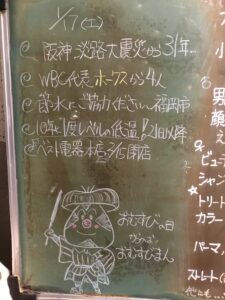 1/17(土)
阪神・淡路大震災から31年…
WBC代表ホークスから4人
節水にご協力ください 福岡市
10年に1度レベルの低温、1/21日以降
ベスト電器本店 2/5閉店
おむすびの日
おむすびまん
男
顔
シャン
トリート
カラー
パーマ
ストレート